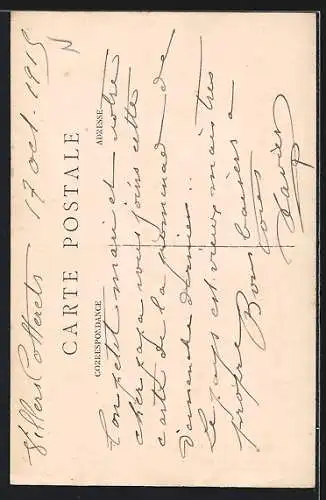 Villers Cotterets 17 oct. 1915
CARTE POSTALE
CORRESPONDANCE
ADRESSE
Ton petit mari et votre
cher papa vous joins cette
carte de la promenade de
dimanche dernier.
Le pays est vieux mais très
propre Bons baisers a
tous
Xavier